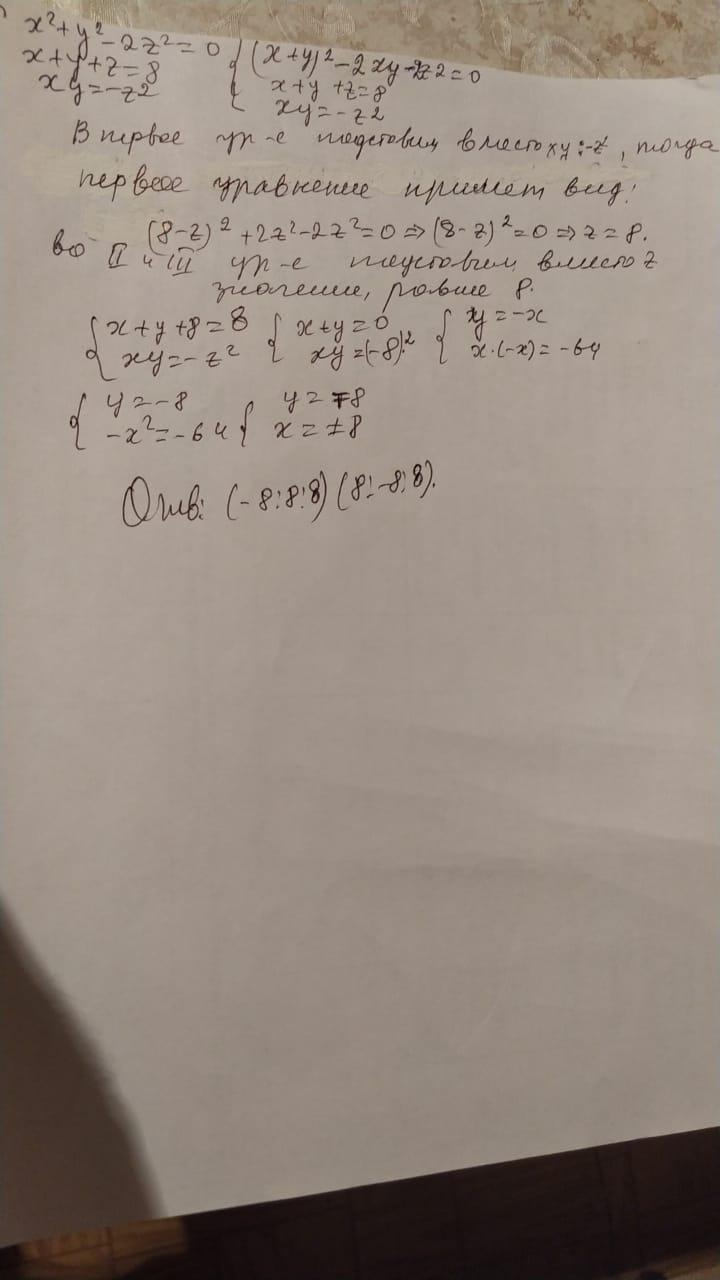 x² + y² - 2z² = 0 { (x+y)² - 2xy - 2z2 = 0
x + y + z = 8 x + y + z = 8
xy = -z2 xy = -z2
В первое ур-е подставим вместо xy: -z², тогда
первое уравнение примет вид:
(8-z)² + 2z² - 2z² = 0 ⇒ (8-z)² = 0 ⇒ z = 8.
во II и III ур-е подставим вместо z
значение, равное 8.
{ x + y + 8 = 8 { x + y = 0 { y = -x
xy = -z² xy = (-8)² x·(-x) = -64
{ y = -8 { y = ∓8
-x² = -64 x = ±8
Отв: (-8; 8; 8) (8; -8; 8).